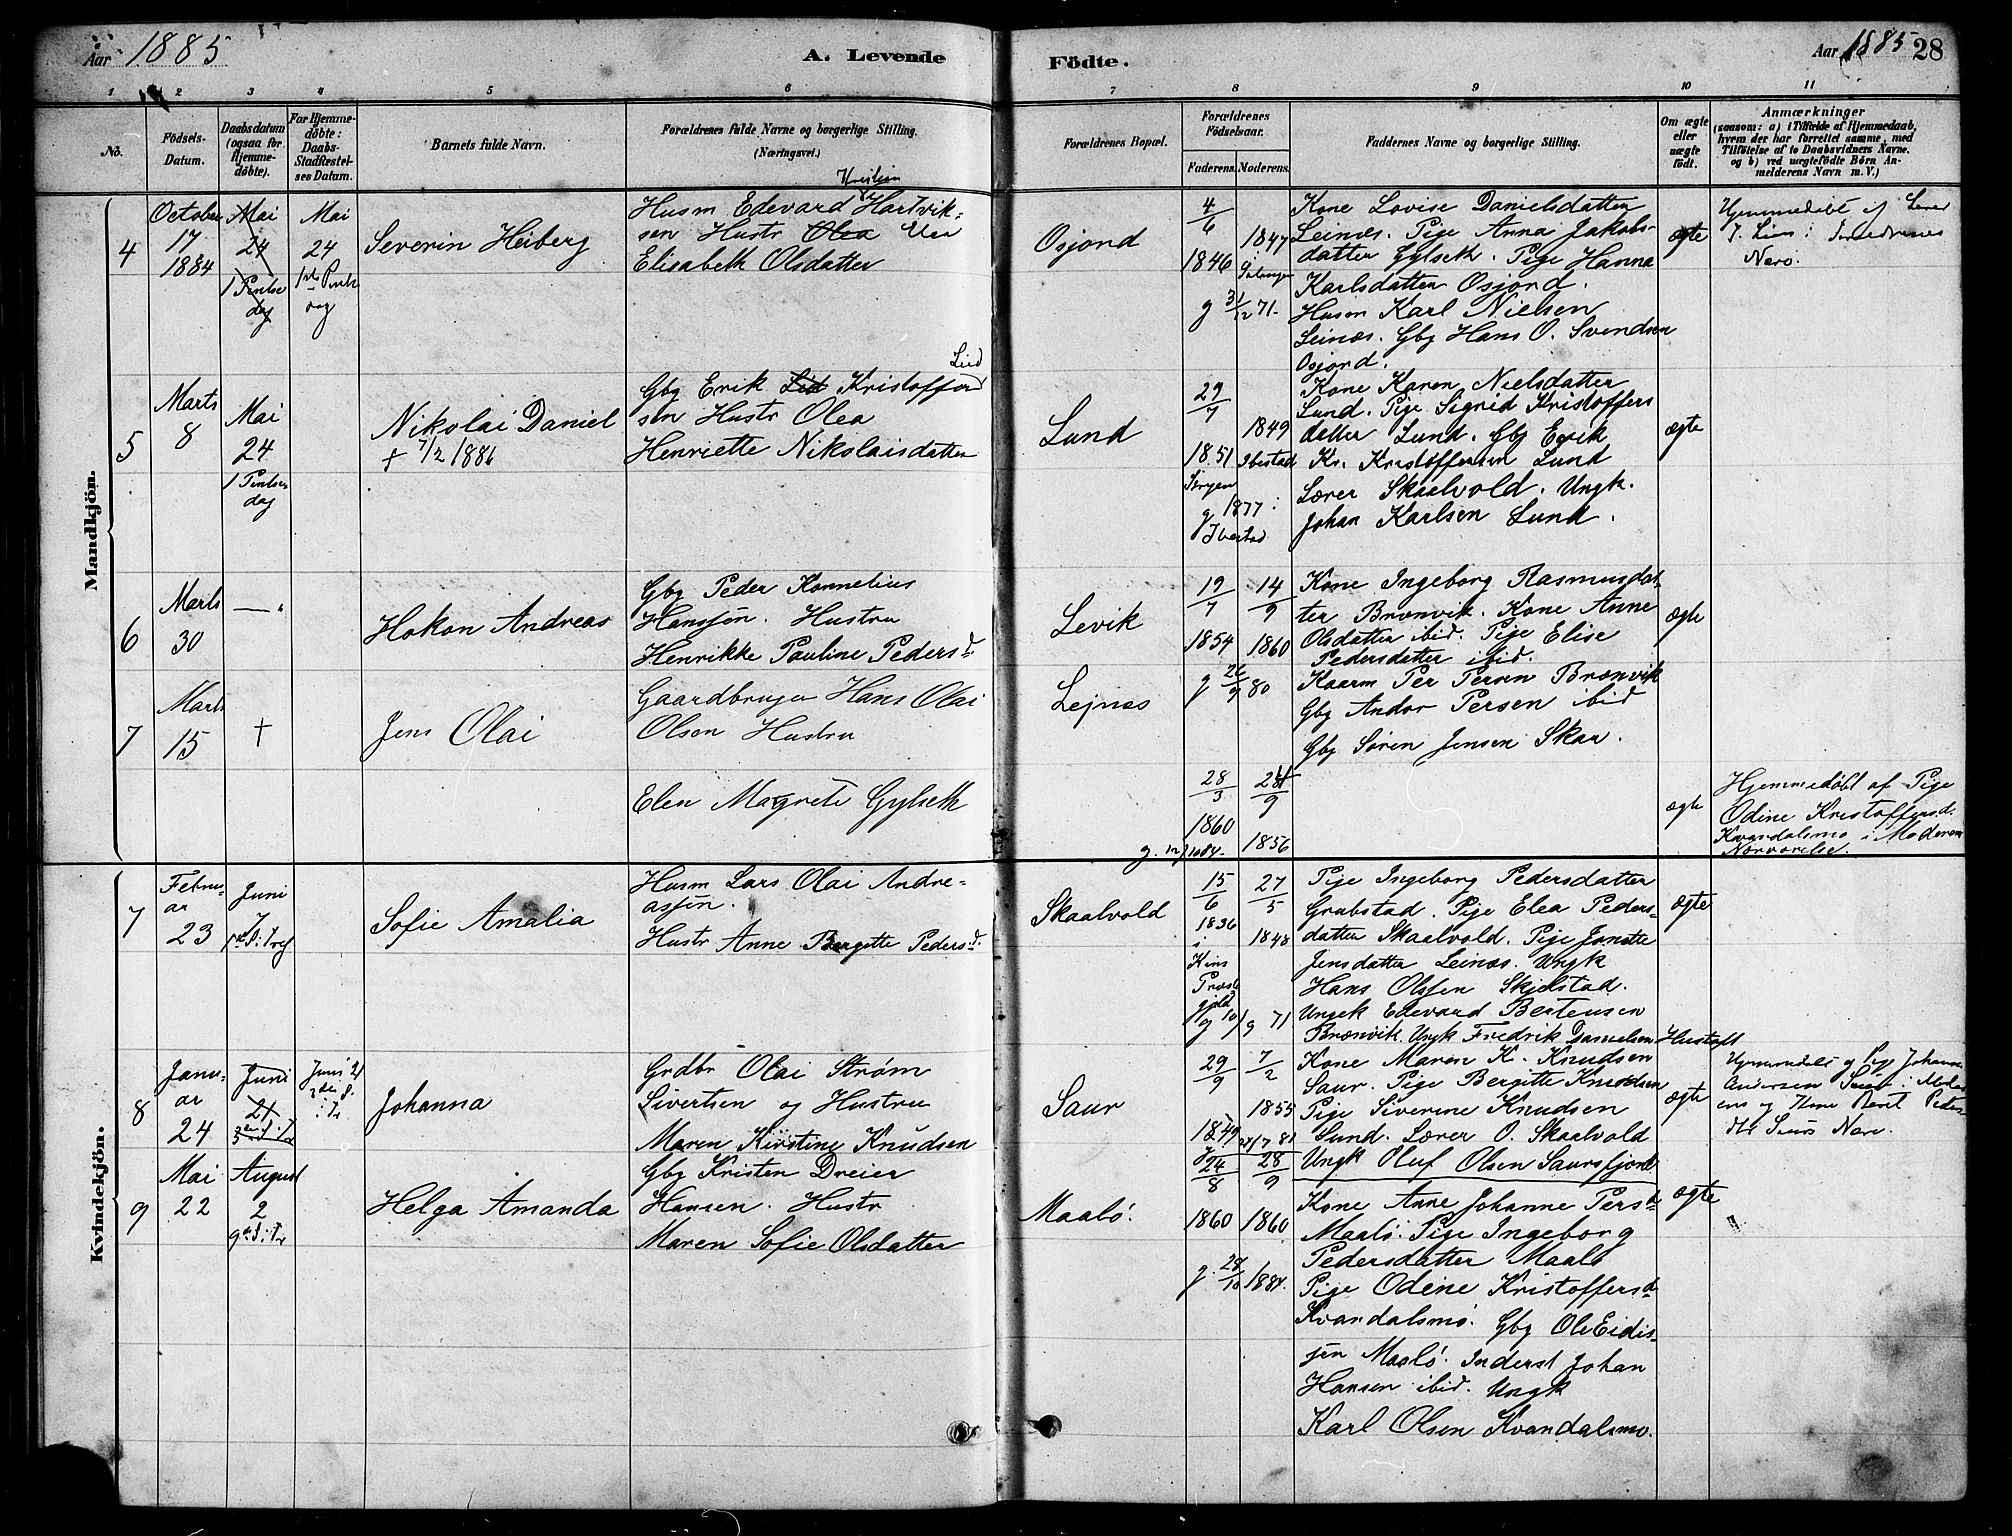 Aar 1885
A. Levende
Födte.
Aar 1885
28
1 2 3 4 5 6 7 8 9 10 11
No.
Födsels-
Datum.
Daabsdatum
(ogsaa for
Hjemme-
döbte).
For Hjemme-
döbte:
Daabs-
Stadfæstel-
ses Datum.
Barnets fulde Navn.
Forældrenes fulde Navne og borgerlige Stilling.
(Næringsvei.)
Forældrenes Bopæl.
Forældrenes
Födselsaar.
Faderens.
Moderens.
Faddernes Navne og borgerlige Stilling.
Om ægte
eller
uægte
födt.
Anmærkninger
(saasom: a) i Tilfælde af Hjemmedaab,
hvem der har forrettet samme, med
Tilföielse af to Daabsvidners Navne,
og b) ved uægtefödte Börn An-
melderens Navn m. V.)
Mandkjön.
4
October
17
1884
Mai
24
1 Pintse
dag
Mai
24
1ste Pintse
dag
Severin Heiberg
Kristian
Husm Edevard Hartvik-
sen Hustr Olea
Elisabeth Olsdatter
Osjord
4/6
1846
1847
g 31/12 71
Kone Lovise Danielsdatter
Leinæs. Pige Anna Jakobs-
datter Gylseth. Pige Hanna
Karlsdatter Osjord.
Husm Karl Nielsen
Leinæs. Gbg Hans O. Svendsen
Osjord.
ægte
5
Marts
8
Mai
24
1 Pintse
dag
Nikolai Daniel
+ 7/2 1886
Lund
Gbg Erik Lid Kristoffer
sen Hustr Olea
Henriette Nikolaisdatter
Lund
29/7
1851
1849
Ibestad
g 1877
Ibestad
Kone Karen Nielsdatter
Lund. Pige Sigrid Kristoffers
datter Lund. Gbg Erik
Kr. Kristoffersen Lund
Lærer Skaalvold. Ungk.
Johan Karlsen Lund.
ægte
6
Marts
30
—"
Hakon Andreas
Gbg Peder Kornelius
Hanssen. Hustru
Henrikke Pauline Pedersd.
Levik
19/7
1854
14/9
1860
g 26/9 80
Kone Ingeborg Rasmusdat-
ter Brønvik. Kone Anne
Olsdatter ibid. Pige Elise
Pedersdatter ibid.
Kaarm Per Persen Brønvik
Gbg Andor Persen ibid
Gbg Søren Jensen Skar.
ægte
7
Marts
15
+
Jens Olai
Gaardbruger Hans Olai
Olsen Hustru
Elen Magrete Gylseth
Lejnes
28/3
1860
9
1856
ægte
Hjemmedøbt af Pige
Odine Kristoffersd.
Kvandalsmo i Moderens
Nærværelse.
Kvindekjön.
7
Febru-
ar
23
Juni
Sofie Amalia
Husm Lars Olai Andre-
assen.
Hustr Anne Bergitte Pedersd.
Skaalvold
15/6
1836
i
Kins
Præste
gjeld
27/5
1848
g 71
Pige Ingeborg Pedersdatter
Grubstad. Pige Elea Peders-
datter Skaalvold. Pige Janette
Jensdatter Leinæs. Ungk
Hans Olssen Skjelstad.
Ungk Edevard Bertensen
Brønvik. Ungk Fredrik Danielsen
ægte
8
Janu-
ar
24
Juni
21
Juni 21
Johanna
Grdbr Olai Strøm
Sivertsen og Hustru
Maren Kirstine Knudsen
Saur
29/9
1849
7/2
1855
Kone Maren K. Knudsen
Saur. Pige Bergitte Knudsen
Pige Siverine Knudsen
Lund. Lærer O. Skaalvold
Ungk Oluf Olsen Saursfjord
ægte
9
Mai
22
August
2
Helga Amanda
Gbg Kristen Dreier
Hansen. Hustr
Maren Sofie Olsdatter
Maalø.
24/8
1860
28/9
1860
g. 28/10 1884.
Kone Anne Johanne Persd.
Maalø. Pige Ingeborg
Pedersdatter Maalø
Pige Odine Kristoffersd.
Kvandalsmo. Gbg Ole Eidis-
sen Maalø. Inderst Johan
Hansen ibid. Ungk
Karl Olsen Kvandalsmo.
ægte